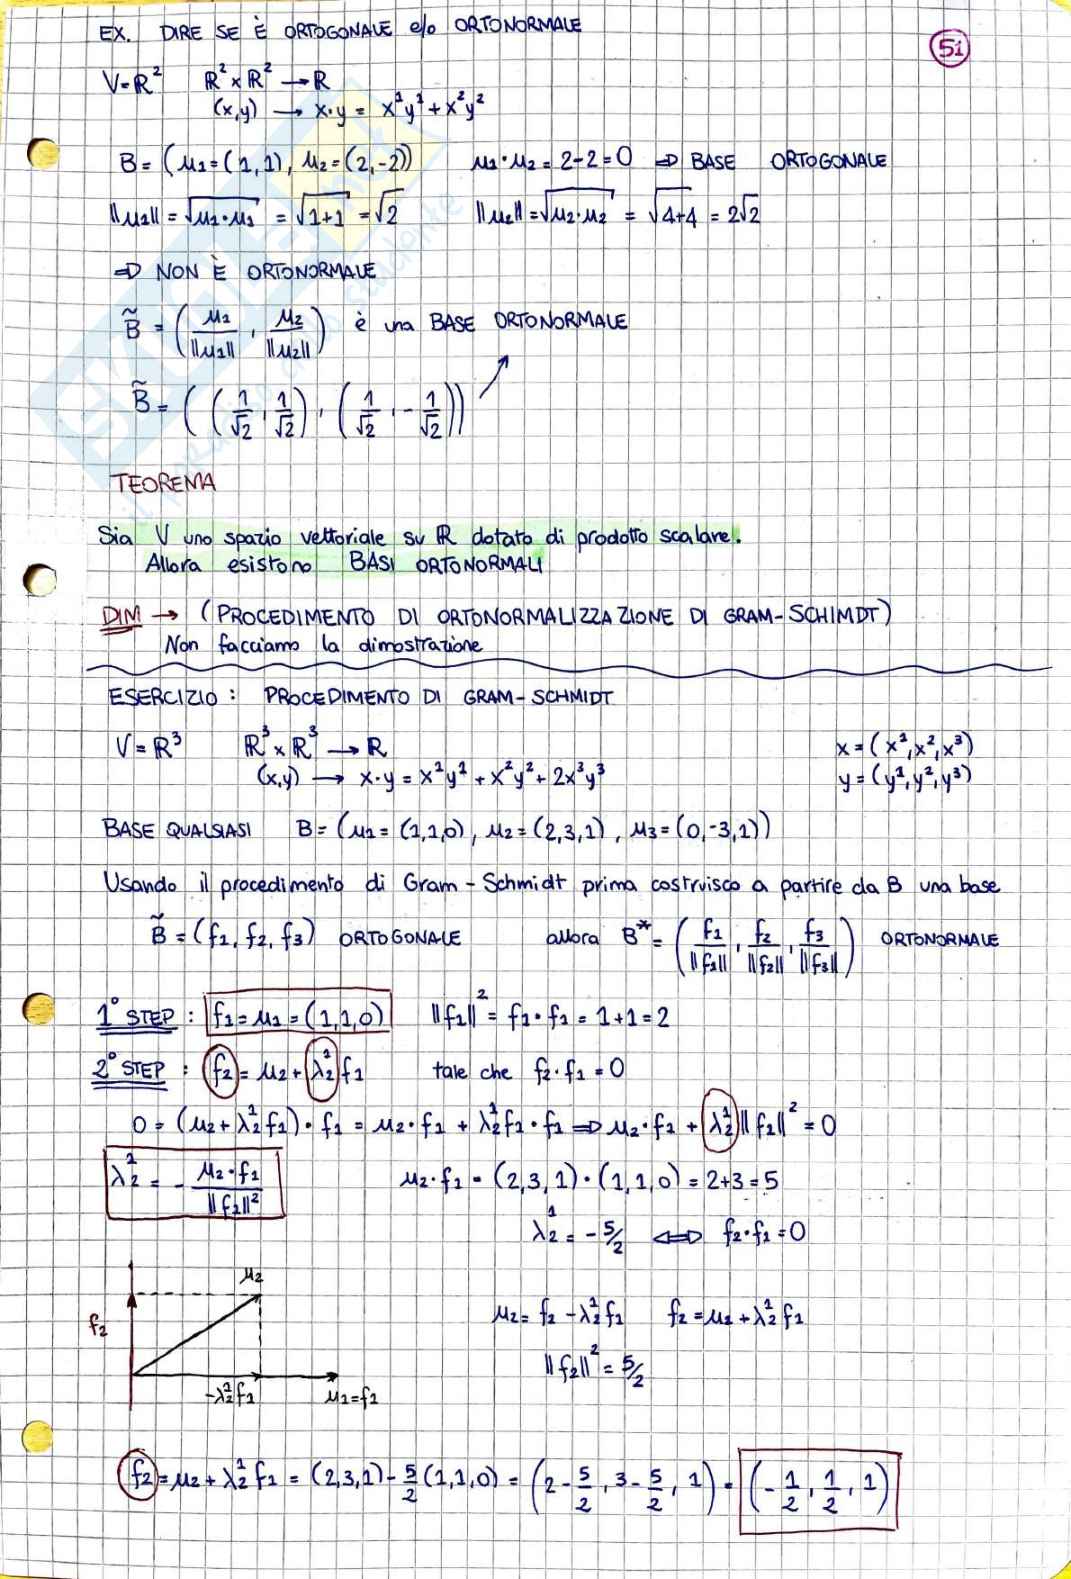 EX. DIRE SE È ORTOGONALE e/o ORTONORMALE
51
V=R² R²×R² → R
(x,y) → x·y = x¹y¹+x²y²
B = (μ1=(1,1), μ2=(2,-2)) μ1·μ2 = 2-2=0 ⇒ BASE ORTOGONALE
||μ1|| = √μ1·μ1 = √1+1 = √2 ||μ2||=√μ2·μ2 = √4+4 = 2√2
⇒ NON È ORTONORMALE
B̃ = (μ1/||μ1||, μ2/||μ2||) è una BASE ORTONORMALE
B̃ = ((1/√2, 1/√2), (1/√2, -1/√2))
TEOREMA
Sia V uno spazio vettoriale su R dotato di prodotto scalare.
Allora esistono BASI ORTONORMALI
DIM → (PROCEDIMENTO DI ORTONORMALIZZAZIONE DI GRAM-SCHIMDT)
Non facciamo la dimostrazione
ESERCIZIO: PROCEDIMENTO DI GRAM-SCHMIDT
V=R³ R³×R³ → R x=(x¹,x²,x³)
(x,y) → x·y = x¹y¹ + x²y² + 2x³y³ y=(y¹,y²,y³)
BASE QUALSIASI B=(μ1=(1,1,0), μ2=(2,3,1), μ3=(0,-3,1))
Usando il procedimento di Gram-Schmidt prima costruisco a partire da B una base
B̃ = (f1, f2, f3) ORTOGONALE allora B*=(f1/||f1||, f2/||f2||, f3/||f3||) ORTONORMALE
1° STEP: f1=μ1=(1,1,0) ||f1||² = f1·f1 = 1+1=2
2° STEP: f2=μ2+λ¹₂f1 tale che f2·f1=0
0=(μ2+λ¹₂f1)·f1 = μ2·f1 + λ¹₂f1·f1 ⇒ μ2·f1 + λ¹₂||f1||²=0
λ¹₂ = - μ2·f1/||f1||² μ2·f1 = (2,3,1)·(1,1,0) = 2+3=5
λ¹₂ = -5/2 ⇔ f2·f1=0
μ2
f2
μ2= f2 -λ¹₂f1 f2=μ2+λ¹₂f1
||f2||² = 5/2
-λ¹₂f1 μ1=f1
f2=μ2+λ¹₂f1 = (2,3,1)-5/2(1,1,0) = (2-5/2, 3-5/2, 1) = (-1/2, 1/2, 1)